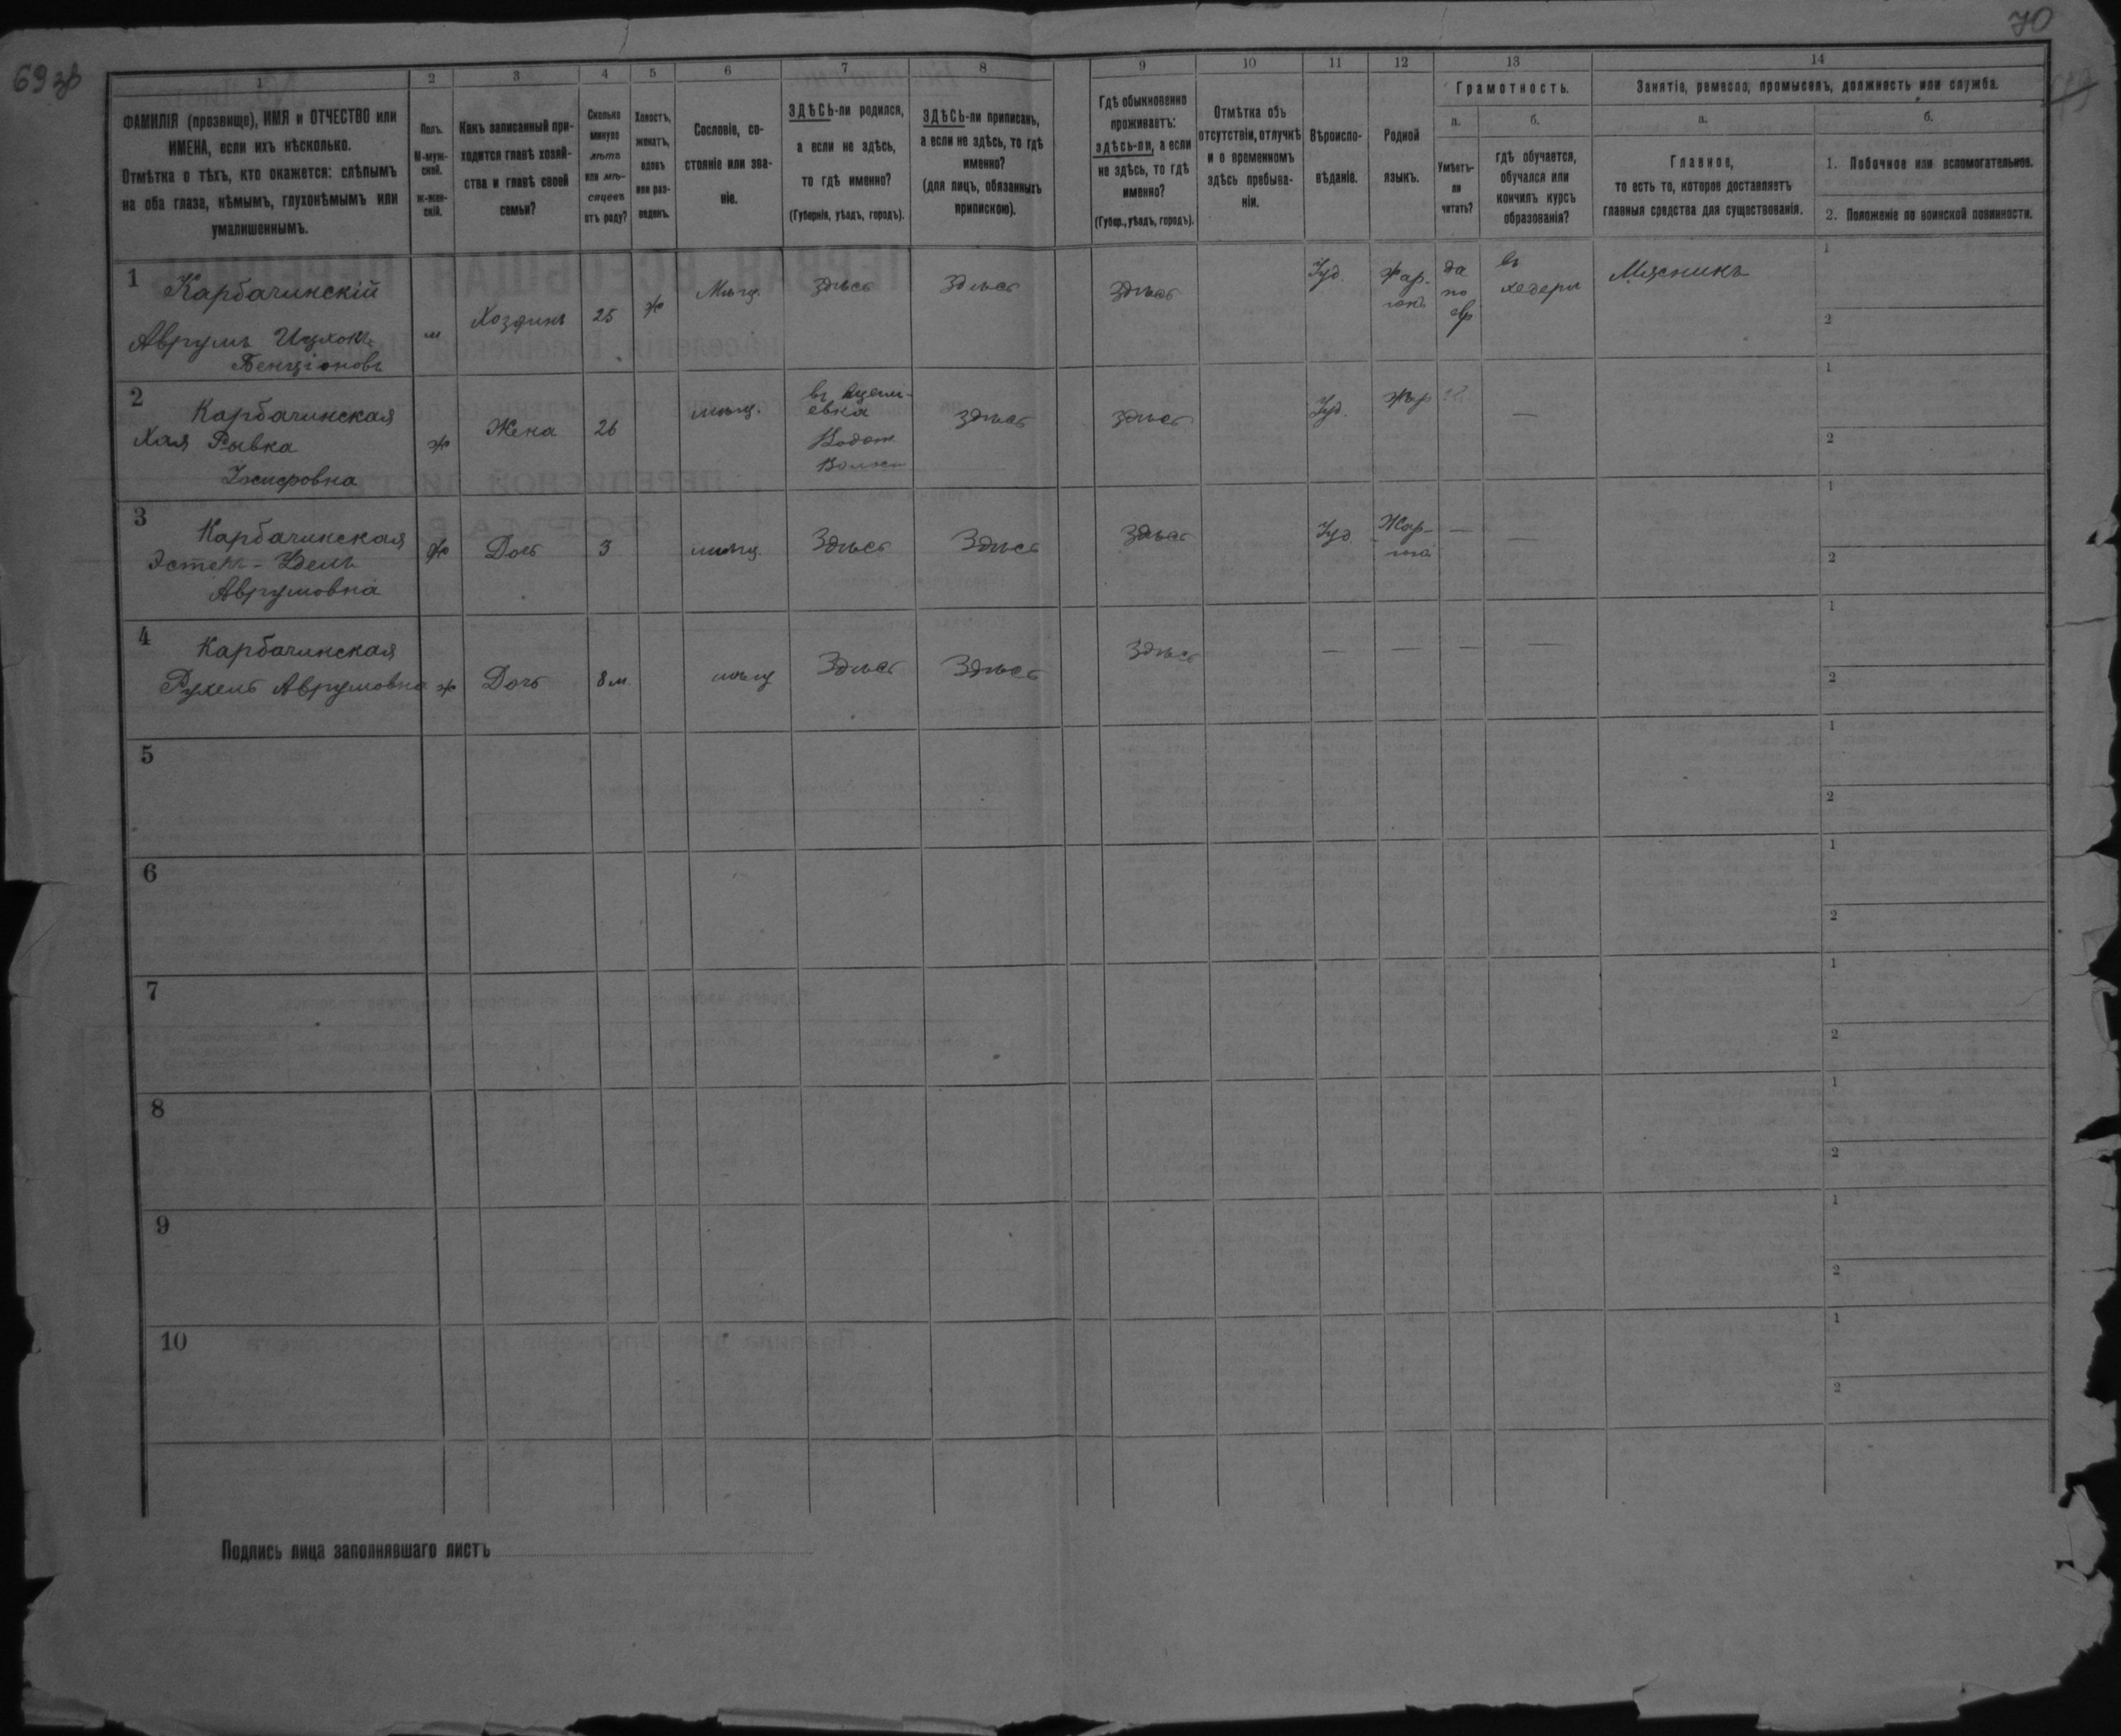 69 зв
70
1 2 3 4 5 6 7 8 9 10 11 12 13 14
ФАМИЛІЯ (прозвище), ИМЯ и ОТЧЕСТВО или
ИМЕНА, если ихъ нѣсколько.
Отмѣтка о тѣхъ, кто окажется: слѣпымъ
на оба глаза, нѣмымъ, глухонѣмымъ или
умалишеннымъ.
Полъ.
М-муж-
ской.
ж-жен-
скій.
Какъ записанный при-
ходится главѣ хозяй-
ства и главѣ своей
семьи?
Сколько
минуло
лѣтъ
или мѣ-
сяцевъ
отъ роду?
Холостъ,
женатъ,
вдовъ
или раз-
веденъ.
Сословіе, со-
стояніе или зва-
ніе.
ЗДѢСЬ-ли родился,
а если не здѣсь,
то гдѣ именно?
(Губернія, уѣздъ, городъ).
ЗДѢСЬ-ли приписанъ,
а если не здѣсь, то гдѣ
именно?
(для лицъ, обязанныхъ
припискою).
Гдѣ обыкновенно
проживаетъ:
здѣсь-ли, а если
не здѣсь, то гдѣ
именно?
(Губер., уѣздъ, городъ).
Отмѣтка объ
отсутствіи, отлучкѣ
и о временномъ
здѣсь пребыва-
ніи.
Вѣроиспо-
вѣданіе.
Родной
языкъ.
Грамотность.
а.
Умѣетъ-
ли
читать?
б.
гдѣ обучается,
обучался или
кончилъ курсъ
образованія?
Занятіе, ремесло, промыселъ, должность или служба.
а.
Главное,
то есть то, которое доставляетъ
главныя средства для существованія.
б.
1. Побочное или вспомогательное.
2. Положеніе по воинской повинности.
1
Карбачинскій
Аврумъ Ицхокъ
Бенціоновъ
м
Хозяинъ
25
ж
Мѣщ.
Здѣсь
Здѣсь
Здѣсь
Іуд.
Жар-
гонъ
да
по
евр
въ
хедерѣ
Мясникъ
1
2
2
Карбачинская
Хая Рывка
Іосифовна
ж
Жена
26
мѣщ.
Здѣсь
Здѣсь
Іуд.
Жар
—
1
2
3
Карбачинская
Эстеръ-Удель
Аврумовна
ж
Дочь
3
мѣщ.
Здѣсь
Здѣсь
Здѣсь
Іуд
Жар-
—
—
1
2
4
Карбачинская
Рухель Аврумовна
ж
Дочь
8 м
мѣщ
Здѣсь
Здѣсь
Здѣсь
—
—
—
—
1
2
5
1
2
6
1
2
7
1
2
8
1
2
9
1
2
10
1
2
Подпись лица заполнявшаго листъ